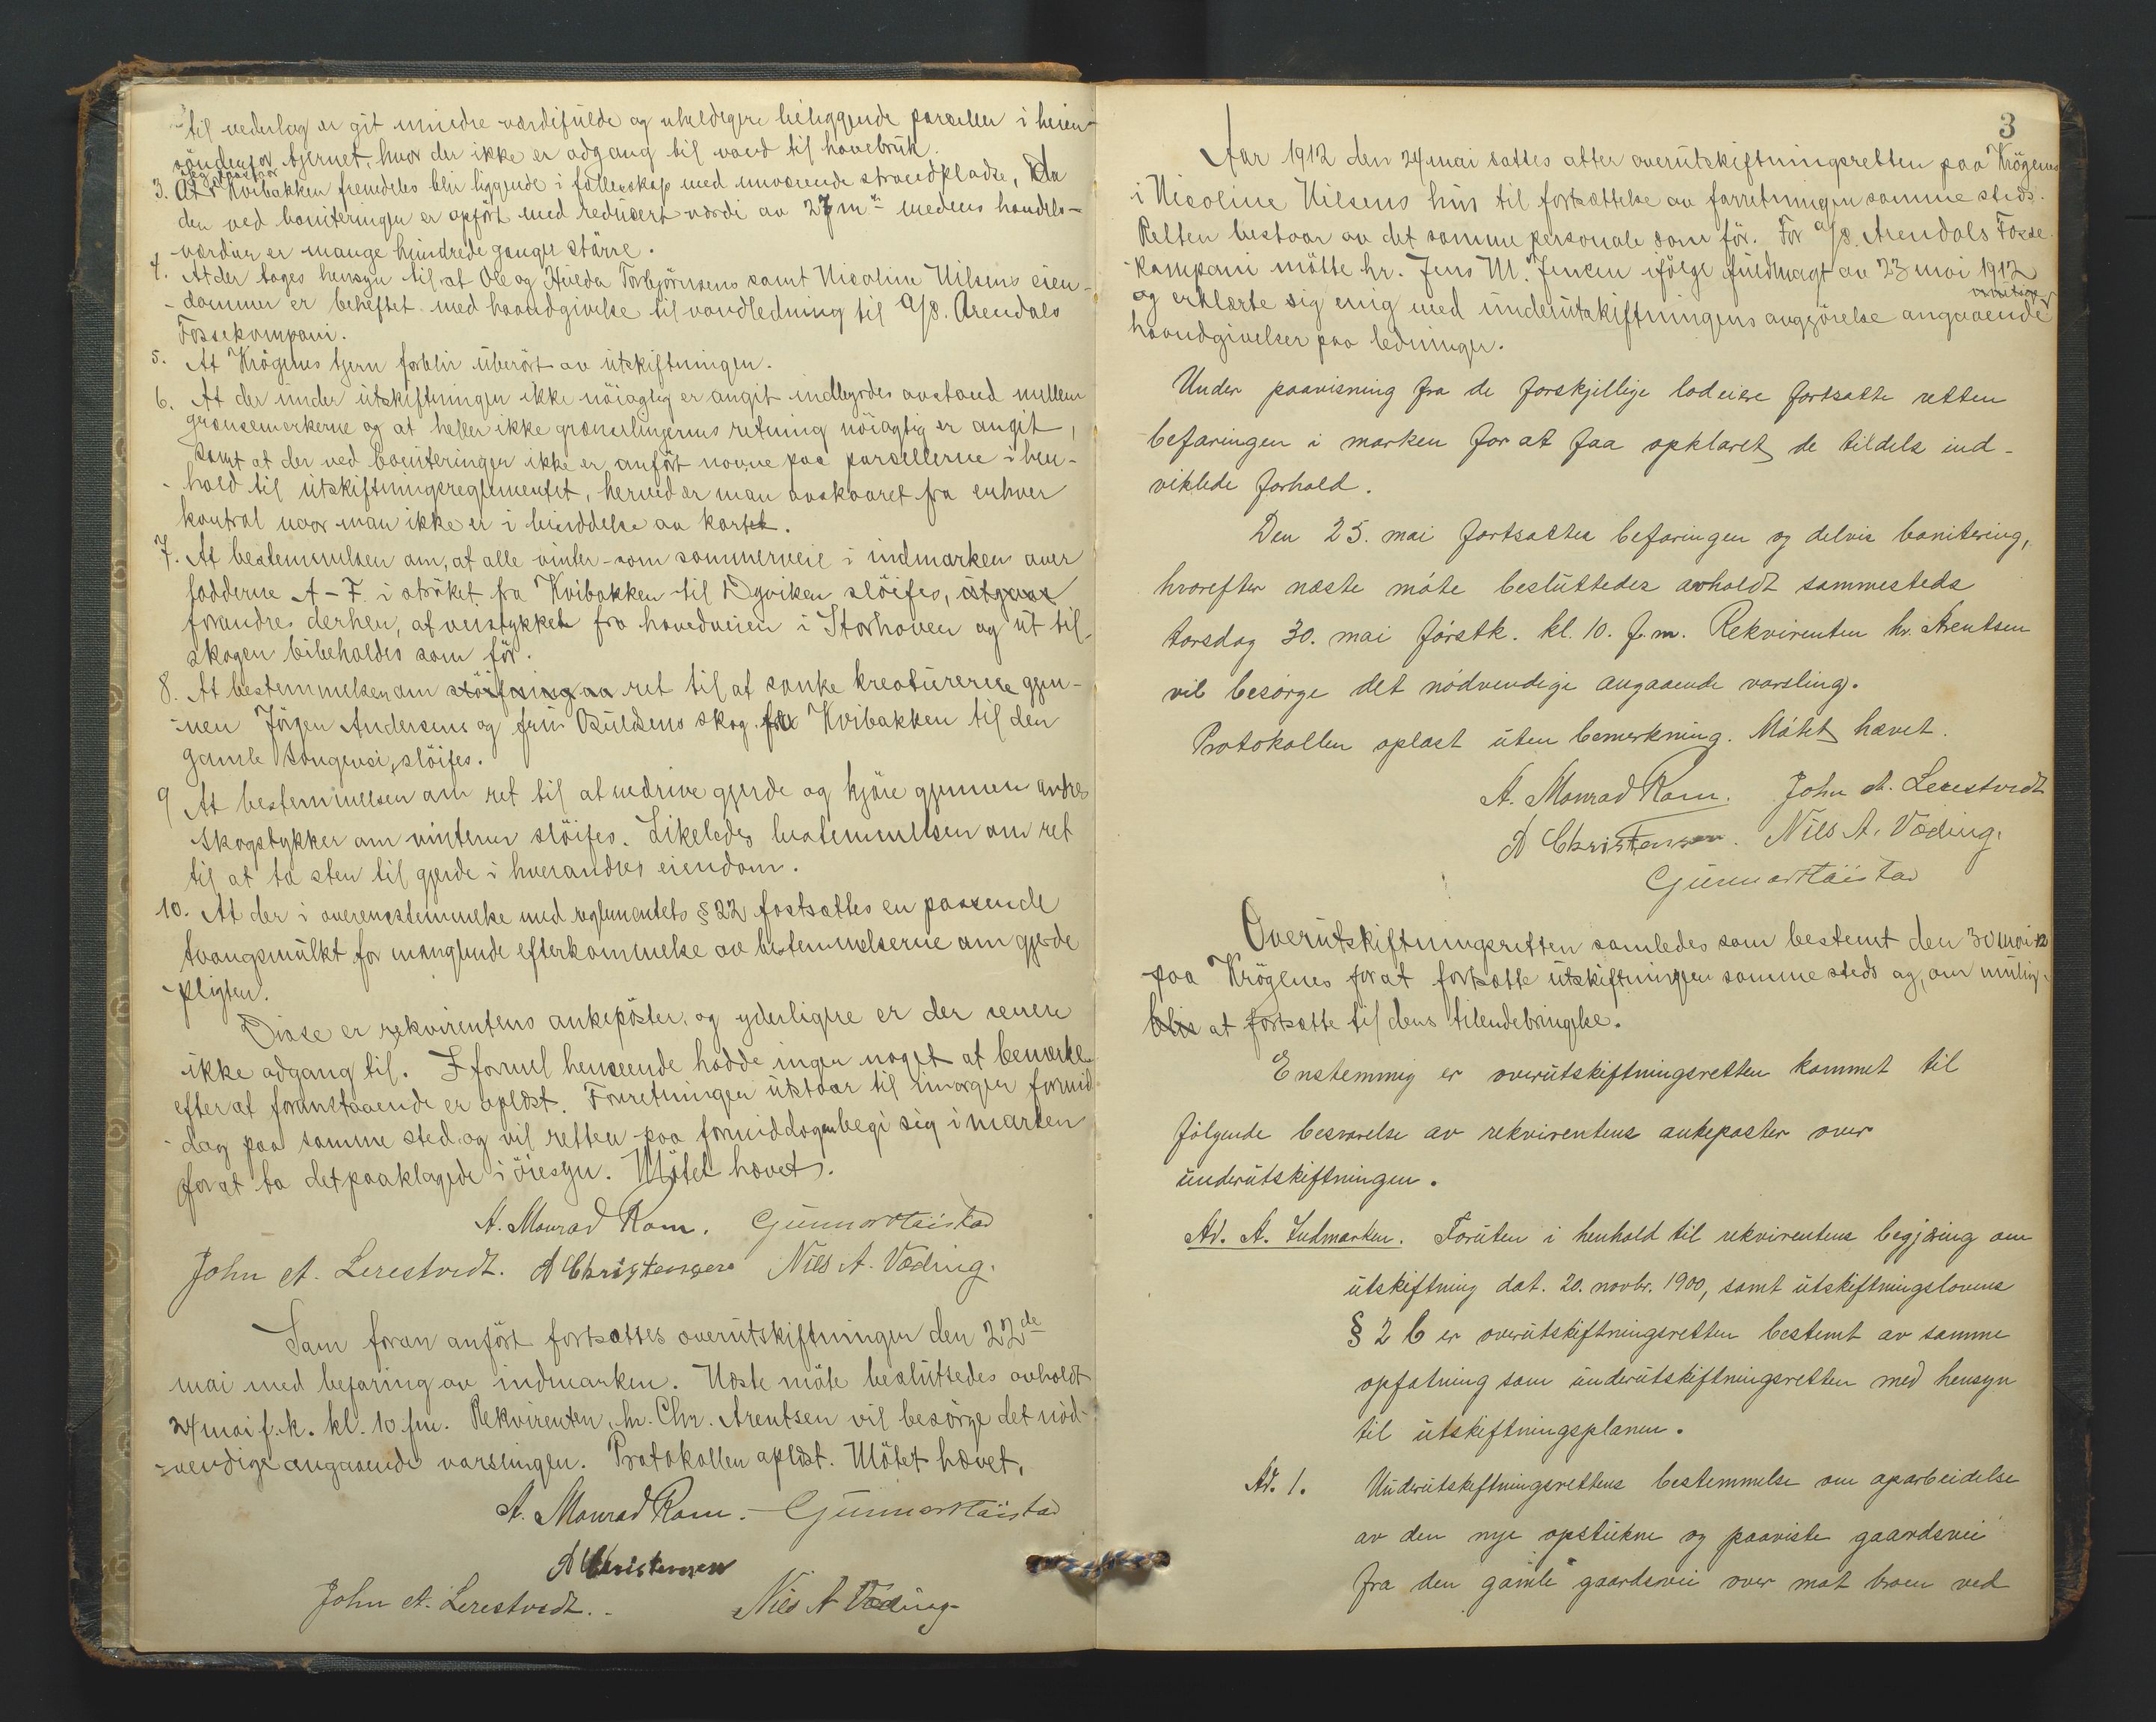 til vederlag er git mindre værdifulde og uheldigere beliggende parceller i heien
söndenfor tjernet, hvor der ikke er adgang til vand til havebruk.
3. At Kvibakken fremdeles blir liggende i fællesskap med nuværende strandpladse, da
den ved boniteringen er opført med reducert værdi av 27 m² medens handels-
værdien er mange hundrede gange större.
4. At der tages hensyn til, at Ole og Hulda Torbjörnsens samt Nicoline Nilsens eien-
-dommer er beheftet med haandgivelse til vandledning til A/S. Arendals
Fossekompani.
5. At Krögenes tjern forblir uberört av utskiftningen.
6. At der under utskiftningen ikke nöiagtig er angit indbyrdes avstand mellem
grænsemerkerne og at heller ikke grænselinjernes retning nöiagtig er angit,
samt at der ved boniteringen ikke er anfört navne paa parcellerne i hen-
-hold til utskiftningsreglementet, herved er man avskaaret fra enhver
kontrol naar man ikke er i besiddelse av kartet.
7. At bestemmelsen om, at alle vinter- som sommerveie i indmarken over
lodderne A-F. i ströket fra Kvibakken til Dyviken slöifes,
forandres derhen, at veistykket fra hovedveien i Storhaven og ut til
skogen bibeholdes som för.
8. At bestemmelsen om ret til at sanke kreaturerne gjen-
-nem Jörgen Andersens og fru Osuldsens skog fra Kvibakken til den
gamle Songevei, slöifes.
9 At bestemmelsen om ret til at nedrive gjerde og kjöre gjennem andres
skogstykker om vinteren slöifes. Likeledes bestemmelsen om ret
til at ta sten til gjerde i hverandres eiendom.
10. At der i overensstemmelse med reglementets § 22 fastsættes en passende
tvangsmulkt for manglende efterkommelse av bestemmelserne om gjerde
pligten.
Disse er rekvirentens ankeposter, og yderligere er der senere
ikke adgang til. I formel henseende hadde ingen noget at bemerke
efterat foranstaaende er oplæst. Forretningen utstaar til imorgen formid
-dag paa samme sted og vil retten paa formiddagen begi sig i marken
forat ta det paaklagede i öiesyn. Mötet hævet.
A. Monrad Ram. Gunnar Haistad
John A. Lerestvedt. A Christensen Nils A. Væding.
Som foran anfört fortsattes overutskiftningen den 22de
mai med befaring av indmarken. Næste möte besluttedes avholdt
24 mai f.k. kl. 10 fm. Rekvirenten, hr. Chr. Arentsen vil besörge det nöd-
-vendige angaaende varslingen. Protokollen oplæst. Mötet hævet.
A. Monrad Ram. - Gunnar Haistad
A Christensen
John A. Lerestvedt. Nils A Væding
3
Aar 1912 den 24 mai sattes atter overutskiftningsretten paa Krögenes
i Nicoline Nilsens hus til fortsættelse av forretningen samme steds.
Retten bestaar av det samme personale som för. For A/S. Arendals Fosse
-kompani mötte hr. Jens M. Jensen ifölge fuldmagt av 23 mai 1912
og erklærte sig enig med underutskiftningens avgjörelse angaaende
haandgivelser paa ledninger.
Under paavisning fra de forskjellige lodeiere fortsatte retten
befaringen i marken for at faa opklaret de tildels ind-
viklede forhold.
Den 25. mai fortsattes befaringen og delvis bonitering,
hvorefter næste möte besluttedes avholdt sammesteds
torsdag 30. mai förstk. kl. 10. f.m. Rekvirenten hr. Arentsen
vil besörge det nödvendige angaaende varsling.
Protokollen oplæst uten bemerkning. Mötet hævet.
A. Monrad Ram. John A. Lerestvedt
A Christensen. Nils A. Væding.
Gunnar Haistad
Overutskiftningsretten samledes som bestemt den 30 mai 12
paa Krögenes for at fortsætte utskiftningen samme steds og, om mulig
blir at fortsætte til dens tilendebringelse.
Enstemmig er overutskiftningsretten kommet til
fölgende besvarelse av rekvirentens ankeposter over
underutskiftningen.
Ad. A. Indmarken. Foruten i henhold til rekvirentens begjæring om
utskiftning dat. 20. novbr. 1900, samt utskiftningslovens
§ 2 b er overutskiftningsretten bestemt av samme
opfatning som underutskiftningsretten med hensyn
til utskiftningsplanen.
Ad. 1. Underutskiftningsrettens bestemmelse om oparbeidelse
av den nye opstukne og paaviste gaardsvei
fra den gamle gaardsvei over mot broen ved